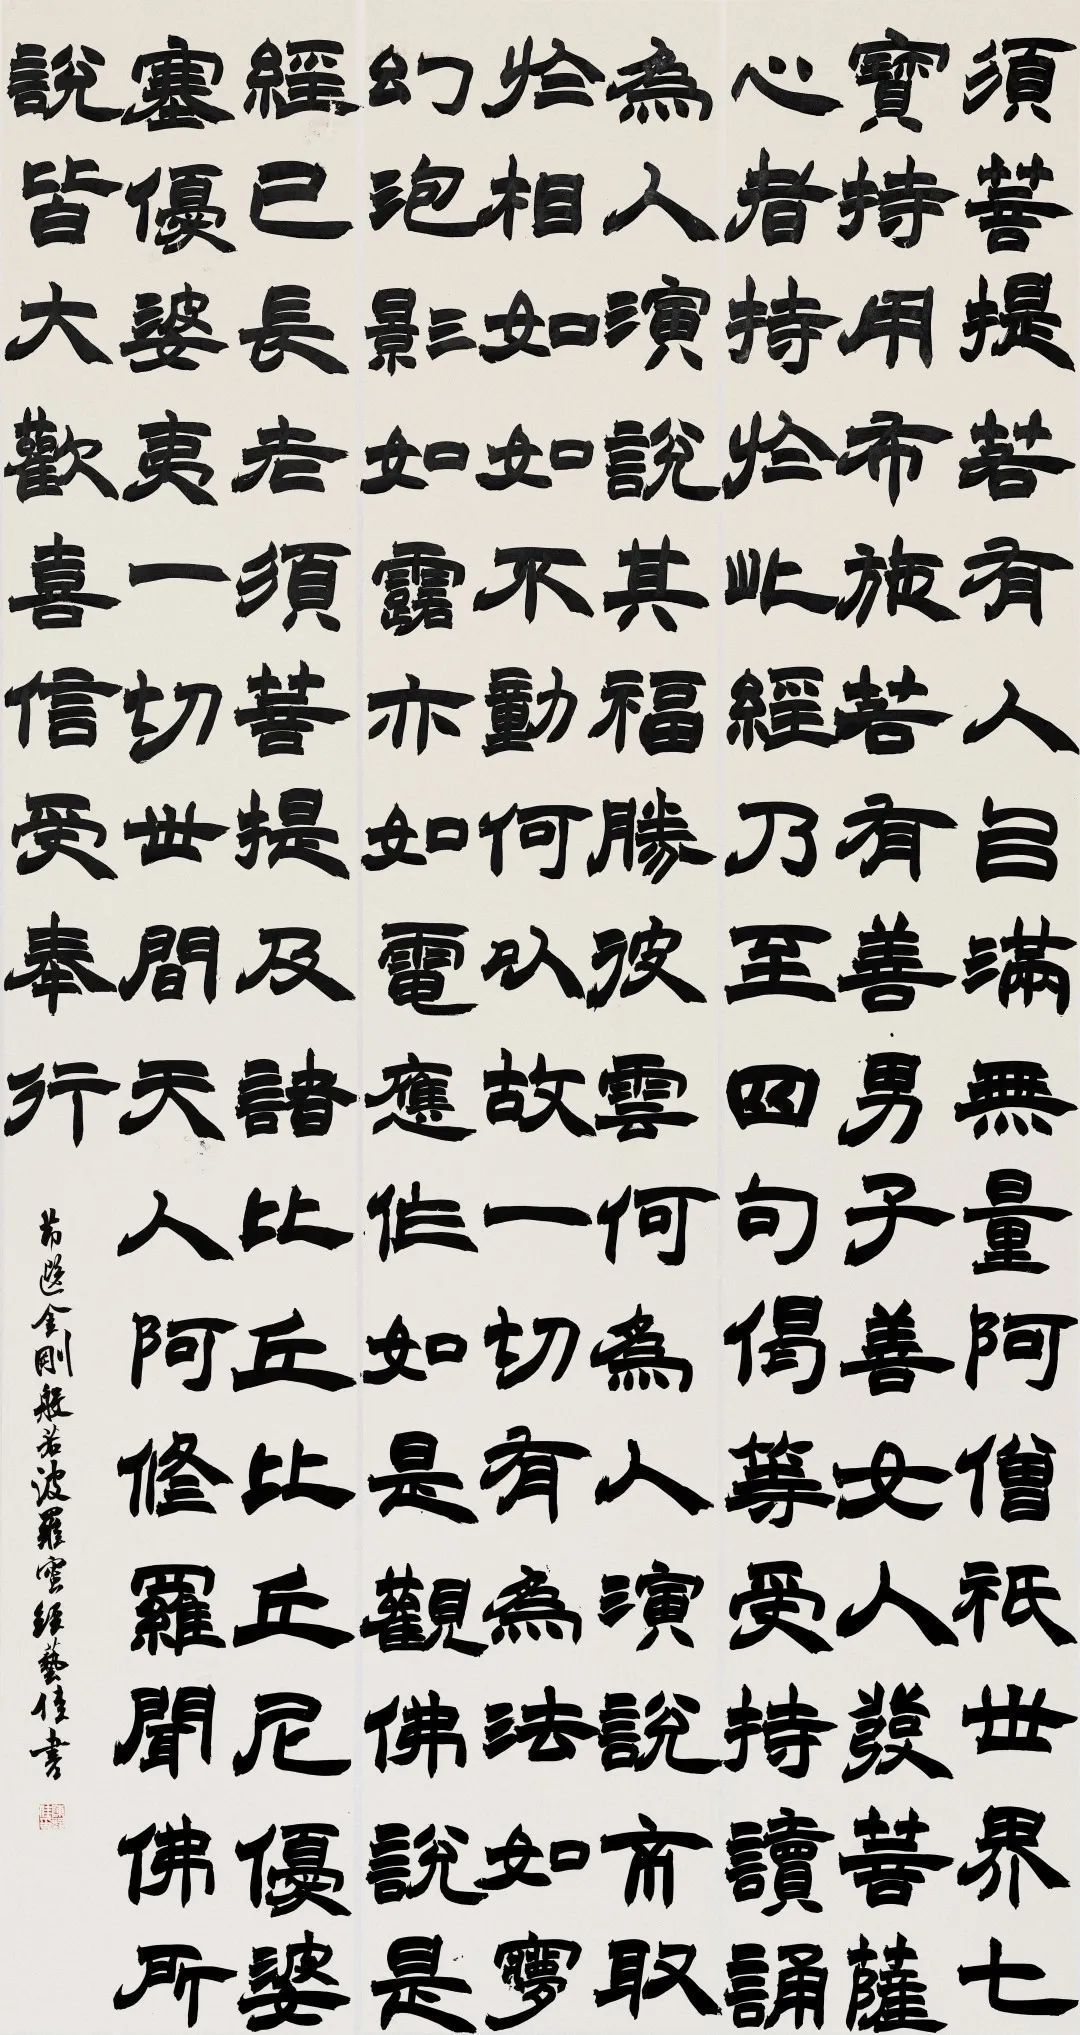 須菩提若有人㠯滿無量阿僧祇世界七
寶持用布施若有善男子善女人發菩薩
心者持於此經乃至四句偈等受持讀誦
為人演說其福勝彼雲何為人演說不取
於相如如不動何以故一切有為法如夢
幻泡影如露亦如電應作如是觀佛說是
經已長老須菩提及諸比丘比丘尼優婆
塞優婆夷一切世間天人阿修羅聞佛所
說皆大歡喜信受奉行
節選金剛般若波羅蜜經藝佳書